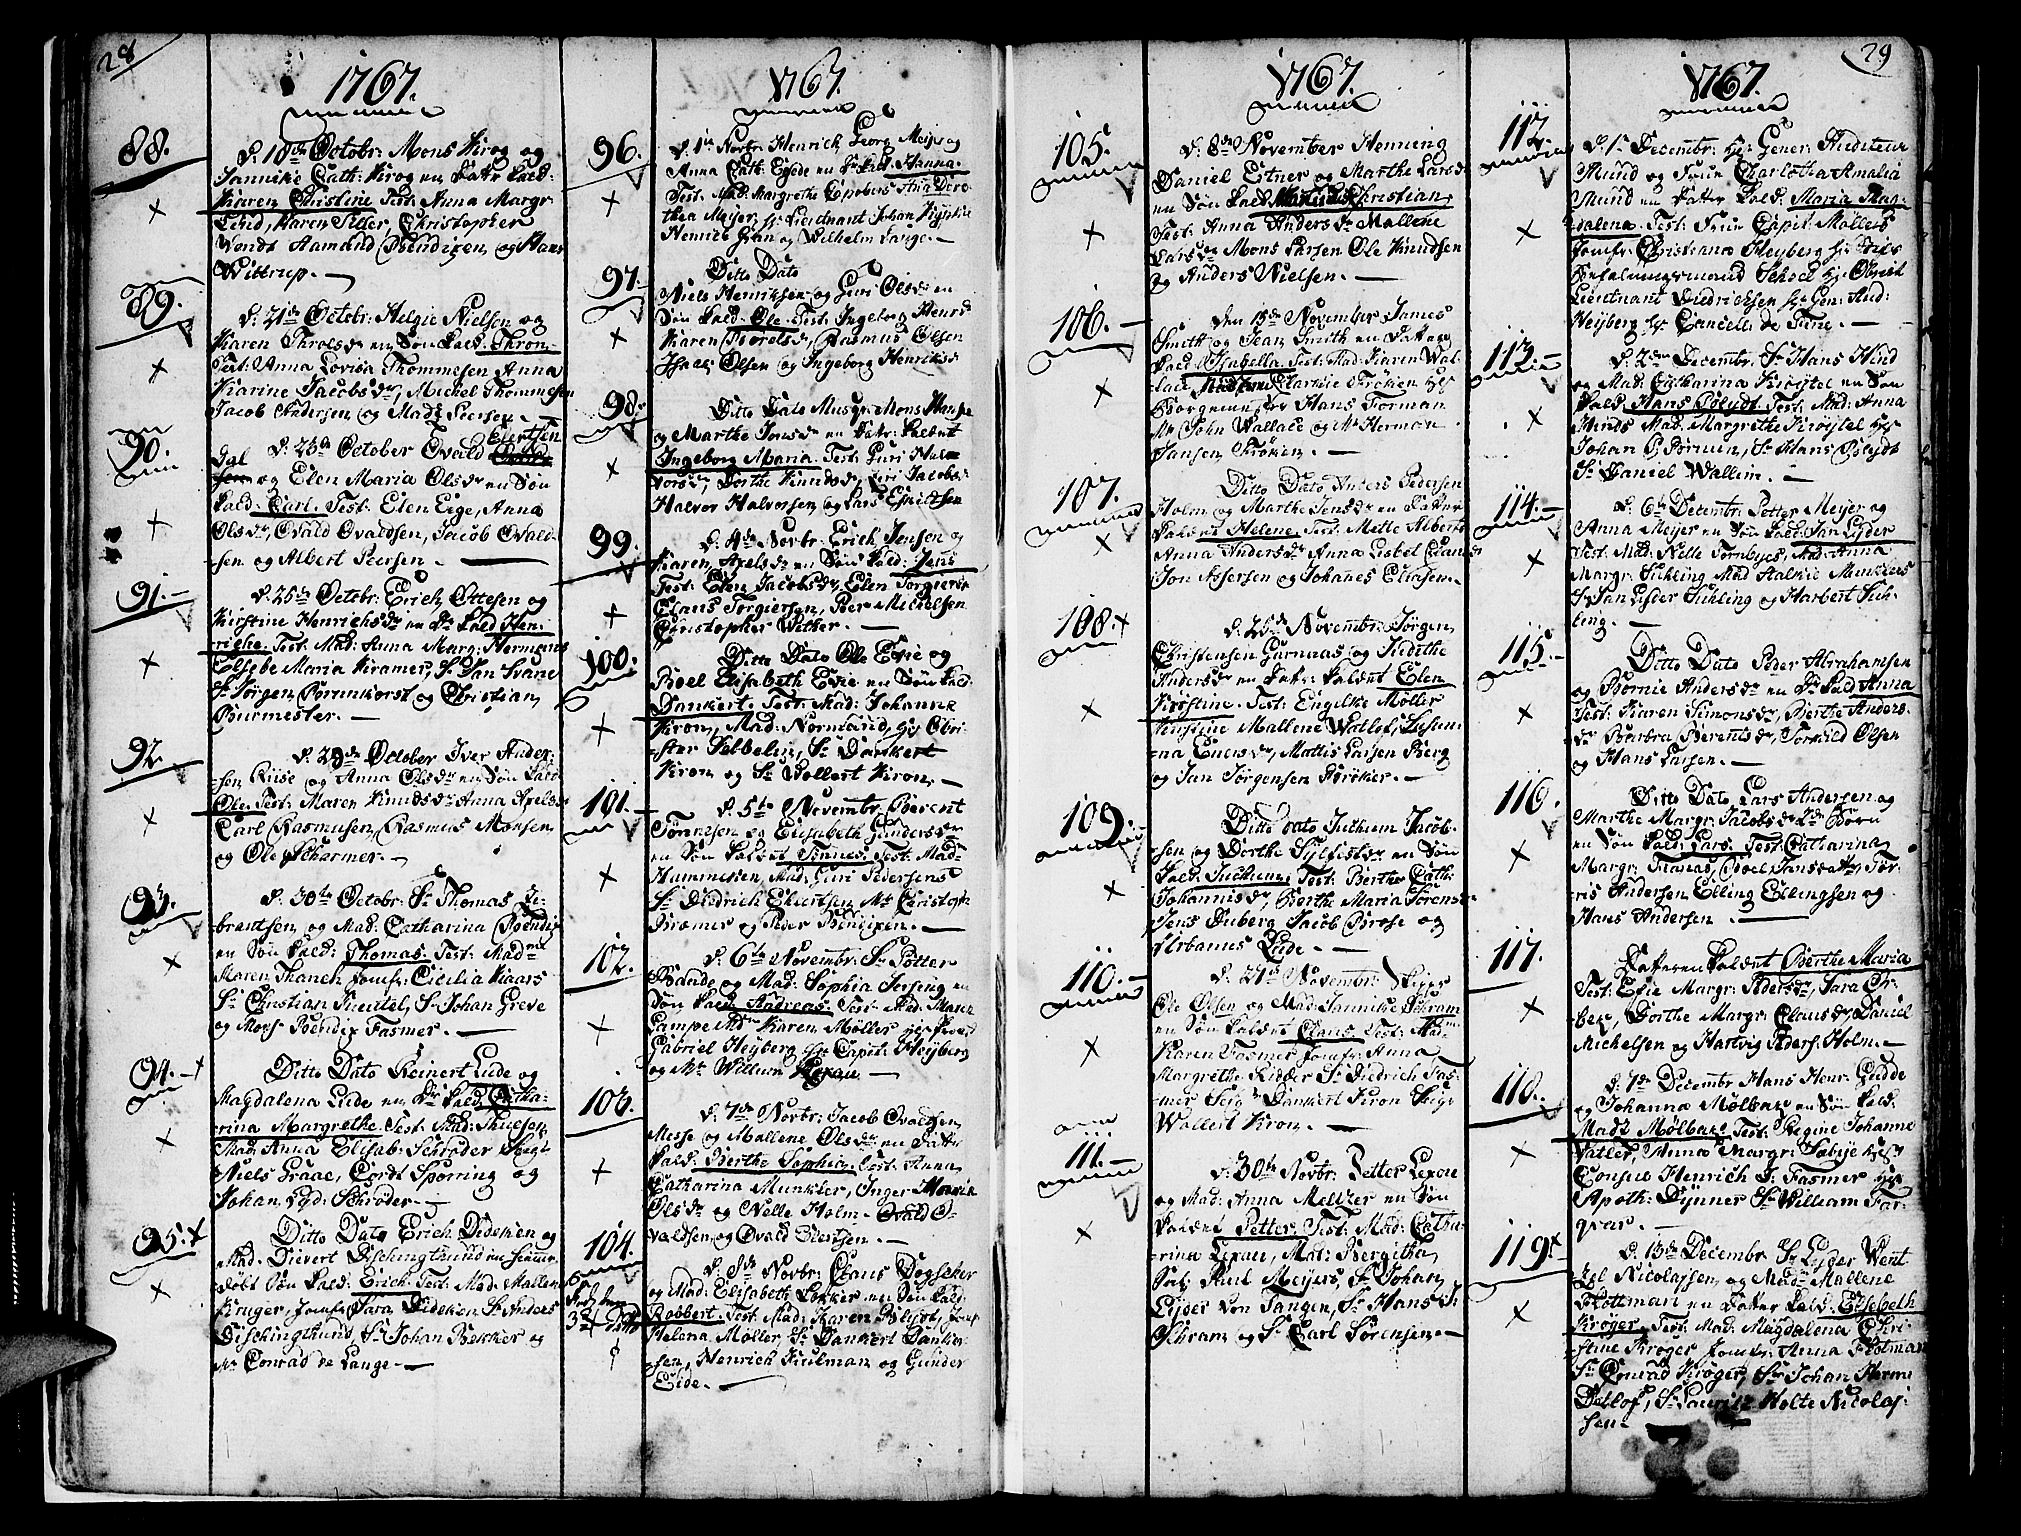 28
1767.
88.
d. 18de Octobr: Mons Krog og
Jannike Cath: Krog en Datr kald:
Karen Christine Test: Anna Margr
Lind, Maren Siller, Christopher
Wendt Aamund Bendixen, og Hans
Wittrup.
89.
d. 21de Octobr: Helgie Nielsen og
Karen Throlsdr en Søn kald: Thron.
Test: Anna Lovisa Thommesen Anna
Karine Jacobsdr, Michel Thommesen
Jacob Andersen og Mads Peersen.
90.
d. 23de October Ovald Eiertsen
og Elen Maria Olsdr en Søn
kald: Carl. Test: Elen Eige, Anna
Olsdr, Ovald Ovaldsen, Jacob Ovald-
sen og Albert Peersen.
91.
d. 25de Octobr: Erich Ottesen og
Kirstine Henrichsdr en Dr kald Hen-
riche. Test: Mad: Anna Marg: Hermans
Elsebe Maria Kramer, Sr Jan Svane
Sr Jørgen Bornikorst og Christian
Burmester.
92.
d. 29de October Iver Ander-
sen Riise og Anna Olsdr en Søn kald
Ole. Test: Maren Knudsdr Anna Axelsdr
Carl Rasmusen, Rasmus Monsen
og Ole Scharmer.
93.
d. 30te Octobr: Sr Thomas Je-
brentsen og Mad: Catharina Bendix
en Søn kald: Thomas. Test: Madme
Maren Thaneh Jomfr: Cicilia Kaars
Sr Christian Kneutel, Sr Johan Greve
og Monsr Bendix Fasmer.
94.
Ditto Dato Reinert Lude og
Magdalena Lude en Dr kald Catha-
rina Margrethe. Test: Mad: Thuesen,
Mad: Anna Elisab: Schrøder Seigr
Niels Graae, Cordt Sporring og
Johan Lyd: Schrøder.
95.
Ditto Dato Erich Didekien og
Mad: Sievert Dischingthund en hiemme-
døbt Søn kald: Erich. Test: Mad: Mallene
Krøger, Jomfr: Sara Didekien Sr Anders
Dischingthund, Sr Johan Bekker og
Mr Conrad de Lange.
1767.
96.
d. 1te Novbr: Henrich Georg Meijer og
Anna Cath: Egede en Dr kald: Hanna.
Test: Mad: Margrethe Espobers Ana Doro-
thea Meyer, hr Lieutnant Johan
Henrich Gran og Wilhelm Lange.
97.
Ditto Dato
Niels Henriksen og Guri Olsdr en
Søn kald: Ole. Test: Ingeborg Henrs
Karen Torolsdr, Rasmus Olsen
Isaac Olsen og Ingeborg Henriksdr
98.
Ditto Dato Musqr: Mons Hanse
og Marthe Jonsdr en Datr: kaldet
Ingeborg Maria. Test: Guri Hal-
vorsdr, Dorthe Knudsdr, Siri Jacobsdr
Halvor Halvorsen og Lars Eskildsen
99.
d. 4de Novbr: Erich Jensen og
Karen Axelsdr en Søn kald: Jens
Test: Elen Jacobsdr, Elen Torgiersdr
Claus Torgiersen, Peer Michelsen
Christopher Welker.
100.
Ditto Dato Ole Evie og
Boel Elisabeth Evie en Søn kald:
Dankert. Test: Mad: Johanne
Kron, Mad: Normand, hr Obri-
ster Sebbelin, Sr Dankert
Kron og Sr Wollert Kron.
101.
d. 5te Novembr: Berent
Tønnesen og Elisabeth Gundersdr
en Søn kaldet Tønnes. Test: Mad:
Hammesen, Mad: Guri Pedersens
Sr Diedrich Ekertsen Mr Christoph
Bræmer og Peder Bendixen.
102.
d. 6te Novembr: Sr Petter
Bande og Mad: Sophia Jersing en
Søn kald Andreas. Test: Mad: Maren
Lampe Mdm Karen Møller
Gabriel Heyberg hr Capit: Heyberg
og Mr Willum Lexau.
103.
d. 7de Novbr: Jacob Ovaldsen
Messe og Mallene Olsdr en Datter
kald: Berthe Sophia. Test: Anna
Catharina Munkler, Inger Maria
Olsdr og Nelle Holm. Ovald O-
valdsen og Ovald Eiertsen.
104.
d. 8de Novbr: Claus Døgseker
og Mad: Elisabeth Bekker en Søn kald:
Robbert. Test: Mad: Karen Blijdt, Jomfr
Helena Møller, Sr Dankert Danker-
sen, Henrich Kiulman og Gunder
Eide.
1767.
105.
d. 8de November Henning
Daniel Eitner og Marthe Larsdr
en Søn kald Christian.
Test: Anna Andersdr Mallene
Larsdr Mons Larsen Ole Knudsen
og Anders Nielsen.
106.
den 15de November James
Smith og Jean Smith en Datter
kald Isabella. Test: Mad: Karen Wal-
lace, Clarkie Frøken Hr
Borgemester Hans Forman
Mr John Wallace og Mr Herman
Jansen Frøken.
107.
Ditto Dato Anders Pedersen
Holm og Marthe Jensdr en Datter
kaldet Helene. Test: Mette Alberts
Anna Andersdr Anna Lisbet Clausdr
Jon Assersen og Johanes Eliasen.
108.
d. 25de Novembr: Jørgen
Christensen Gurnaas og Judithe
Andersdr en Datr: kaldet Elen
Kirstine. Test: Engelke Møller
Kirstine Mallene Watlof, Susan-
na Enersdr, Mattis Larsen Berg
og Jan Jørgensen Brøker.
109.
Ditto Dato Juchum Jacob-
sen og Dorthe Sylfestsdr en Søn
kald: Juchum. Test: Berthe Cath:
Johannisdr, Berthe Maria Sørens
Jens Auberg Jacob Brose og
Urbanus Lude.
110.
d. 27de Novembr: Skippr
Ole Olsen og Mad: Jannike Schram
en Søn kaldet Claus. Test: Madme
Karen Fasmer Jomfr: Anna
Margrethe Ridder Sr Diedrich Fas-
mer Seigr Dankert Kron Seigr
Wollert Kron.
111.
d. 30te Novbr: Petter Lexau
og Mad: Anna Meltzer en Søn
kaldet Petter. Test: Mad: Catha-
rina Lexau, Mad: Bergitha
Sal: Paul Meyers, Sr Johan
Lyder von Tangen, Sr Hans S:
Schram og Sr Carl Sørensen.
29
1767.
112.
d. 1te Decembr: Hr Gener: Auditeur
Mund og Frue Charlotha Amalia
Mund en Datter kald: Maria Mag-
dalena. Test: Frue Capit: Møllers
Jomfr: Christiana Heyberg Hr Stifts
Befalingsmand Scheel Hr Obrist
Lieutnant Diedrichsen Hr Gen: Aud:
Heyberg Hr Cancell: de Fine.
113.
d. 2den Decembr Sr Hans Hind
og Mad: Catharina Krøytel en Søn
kald: Hans Blydt. Test: Mad: Anna
Hinds Mad: Margrethe Krøytel Hr
Johan C. Bruun, Sr Hans Blydt
Sr Daniel Wallem.
114.
d. 6te Decembr: Petter Meyer og
Anna Meijer en Søn kald: Jan Lyder
Test: Md: Nelle Fornbyes, Md: Anna
Margr: Suhling Mad Aalkie Munklers
Sr Jan Lyder Suhling og Harbert Suh-
ling.
115.
Ditto Dato Peder Abrahamsen
og Bornie Andersdr en Dr kald Anna
Test: Karen Simonsdr, Berthe Anders-
dr Barbra Berentsdr, Torkild Olsen
og Hans Larsen.
116.
Ditto Dato Lars Andersen og
Marthe Margr: Jacobsdr 2de Børn
en Søn kald: Lars. Test: Catharina
Margr: Tranas, Boel Jansdatter, Tør-
ris Andersen Elling Ellingsen og
Hans Andersen.
117.
Datteren kaldet Berthe Maria
Test: Evie Margr: Pedersdr, Sara Er-
bex, Dorthe Margr: Clausdr, Daniel
Michelsen og Hartvig Anders: Holm.
118.
d. 7de Decembr Hans Henr: Gudde
og Johanna Mølbak en Søn kald:
Mads Mølbak Test: Regine Johanne
Vatler, Anna Margr: Sæbye Hr
Consul Henrich J. Fasmer Hr
Apoth: Dijnner Sr William Far-
qvar.
119.
d. 13de Decembr Sr Lyder Went
zel Nicolajsen, og Madm Mallene
Flottman en Datter kald. Elisebeth
Krøger. Test: Mad: Magdalena Chri-
stine Krøger Jomfr: Anna Flotman
Sr Conrad Krøger, Sr Johan Herm:
Detlof, Sr Lauritz Holte Nicolaj-
sen.